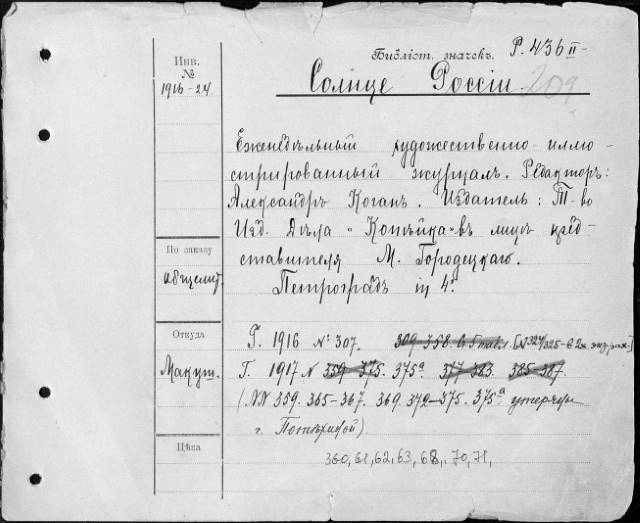 Библіот. значекъ. P. 436 II -
Инв.
№
1916-24
Солнце Россіи. 209
Еженедѣльный художественно-иллю-
стрированный журналъ. Редакторъ:
Александръ Коганъ. Издатель: Т-во
Изд. Дѣла "Копѣйка" въ лицѣ пред-
ставителя М. Городецкаго.
Петроградъ in 4°.
По заказу
Откуда
Г. 1916 №: 307. 309-358. [№ 324/325 - в 2х экз.]
Г. 1917 № 359-375. 375а 377-383. 385-387.
(NN 359. 365-367. 369. 372-375. 375а утеряны
г. Потѣхиной)
Цѣна
360, 61, 62, 63, 68, 70, 71,